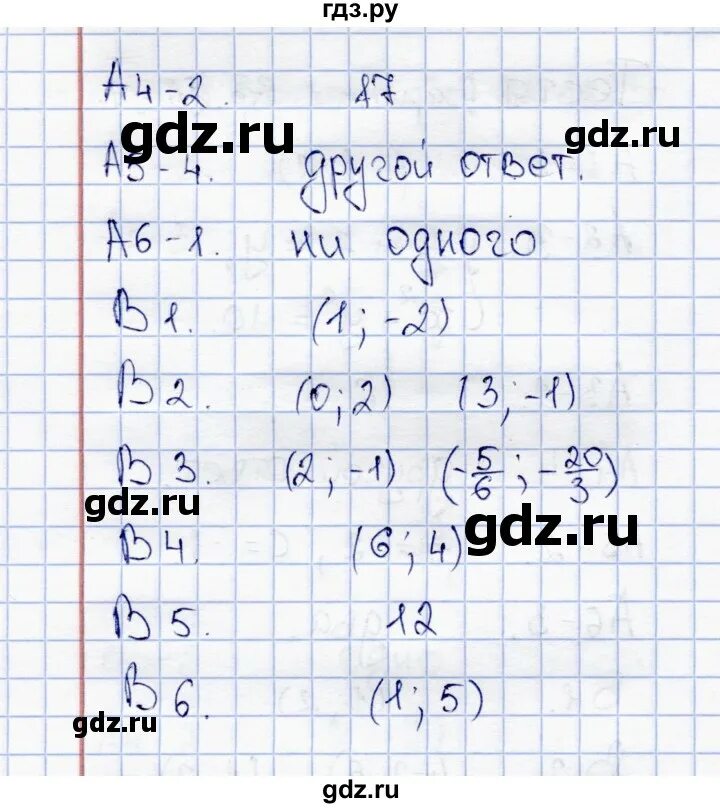 гдз.ру
А4-2. 17
gdz.ru gdz.ru
А5-4. другой ответ.
А6-1. ни одного
В 1. (1; -2)
В 2. (0; 2) (3; -1)
В 3. (2; -1) (-5/6; -20/3)
gdz.ru gdz.ru
В 4. (6; 4)
В 5. 12
В 6. (1; 5)
gdz.ru
gdz.ru